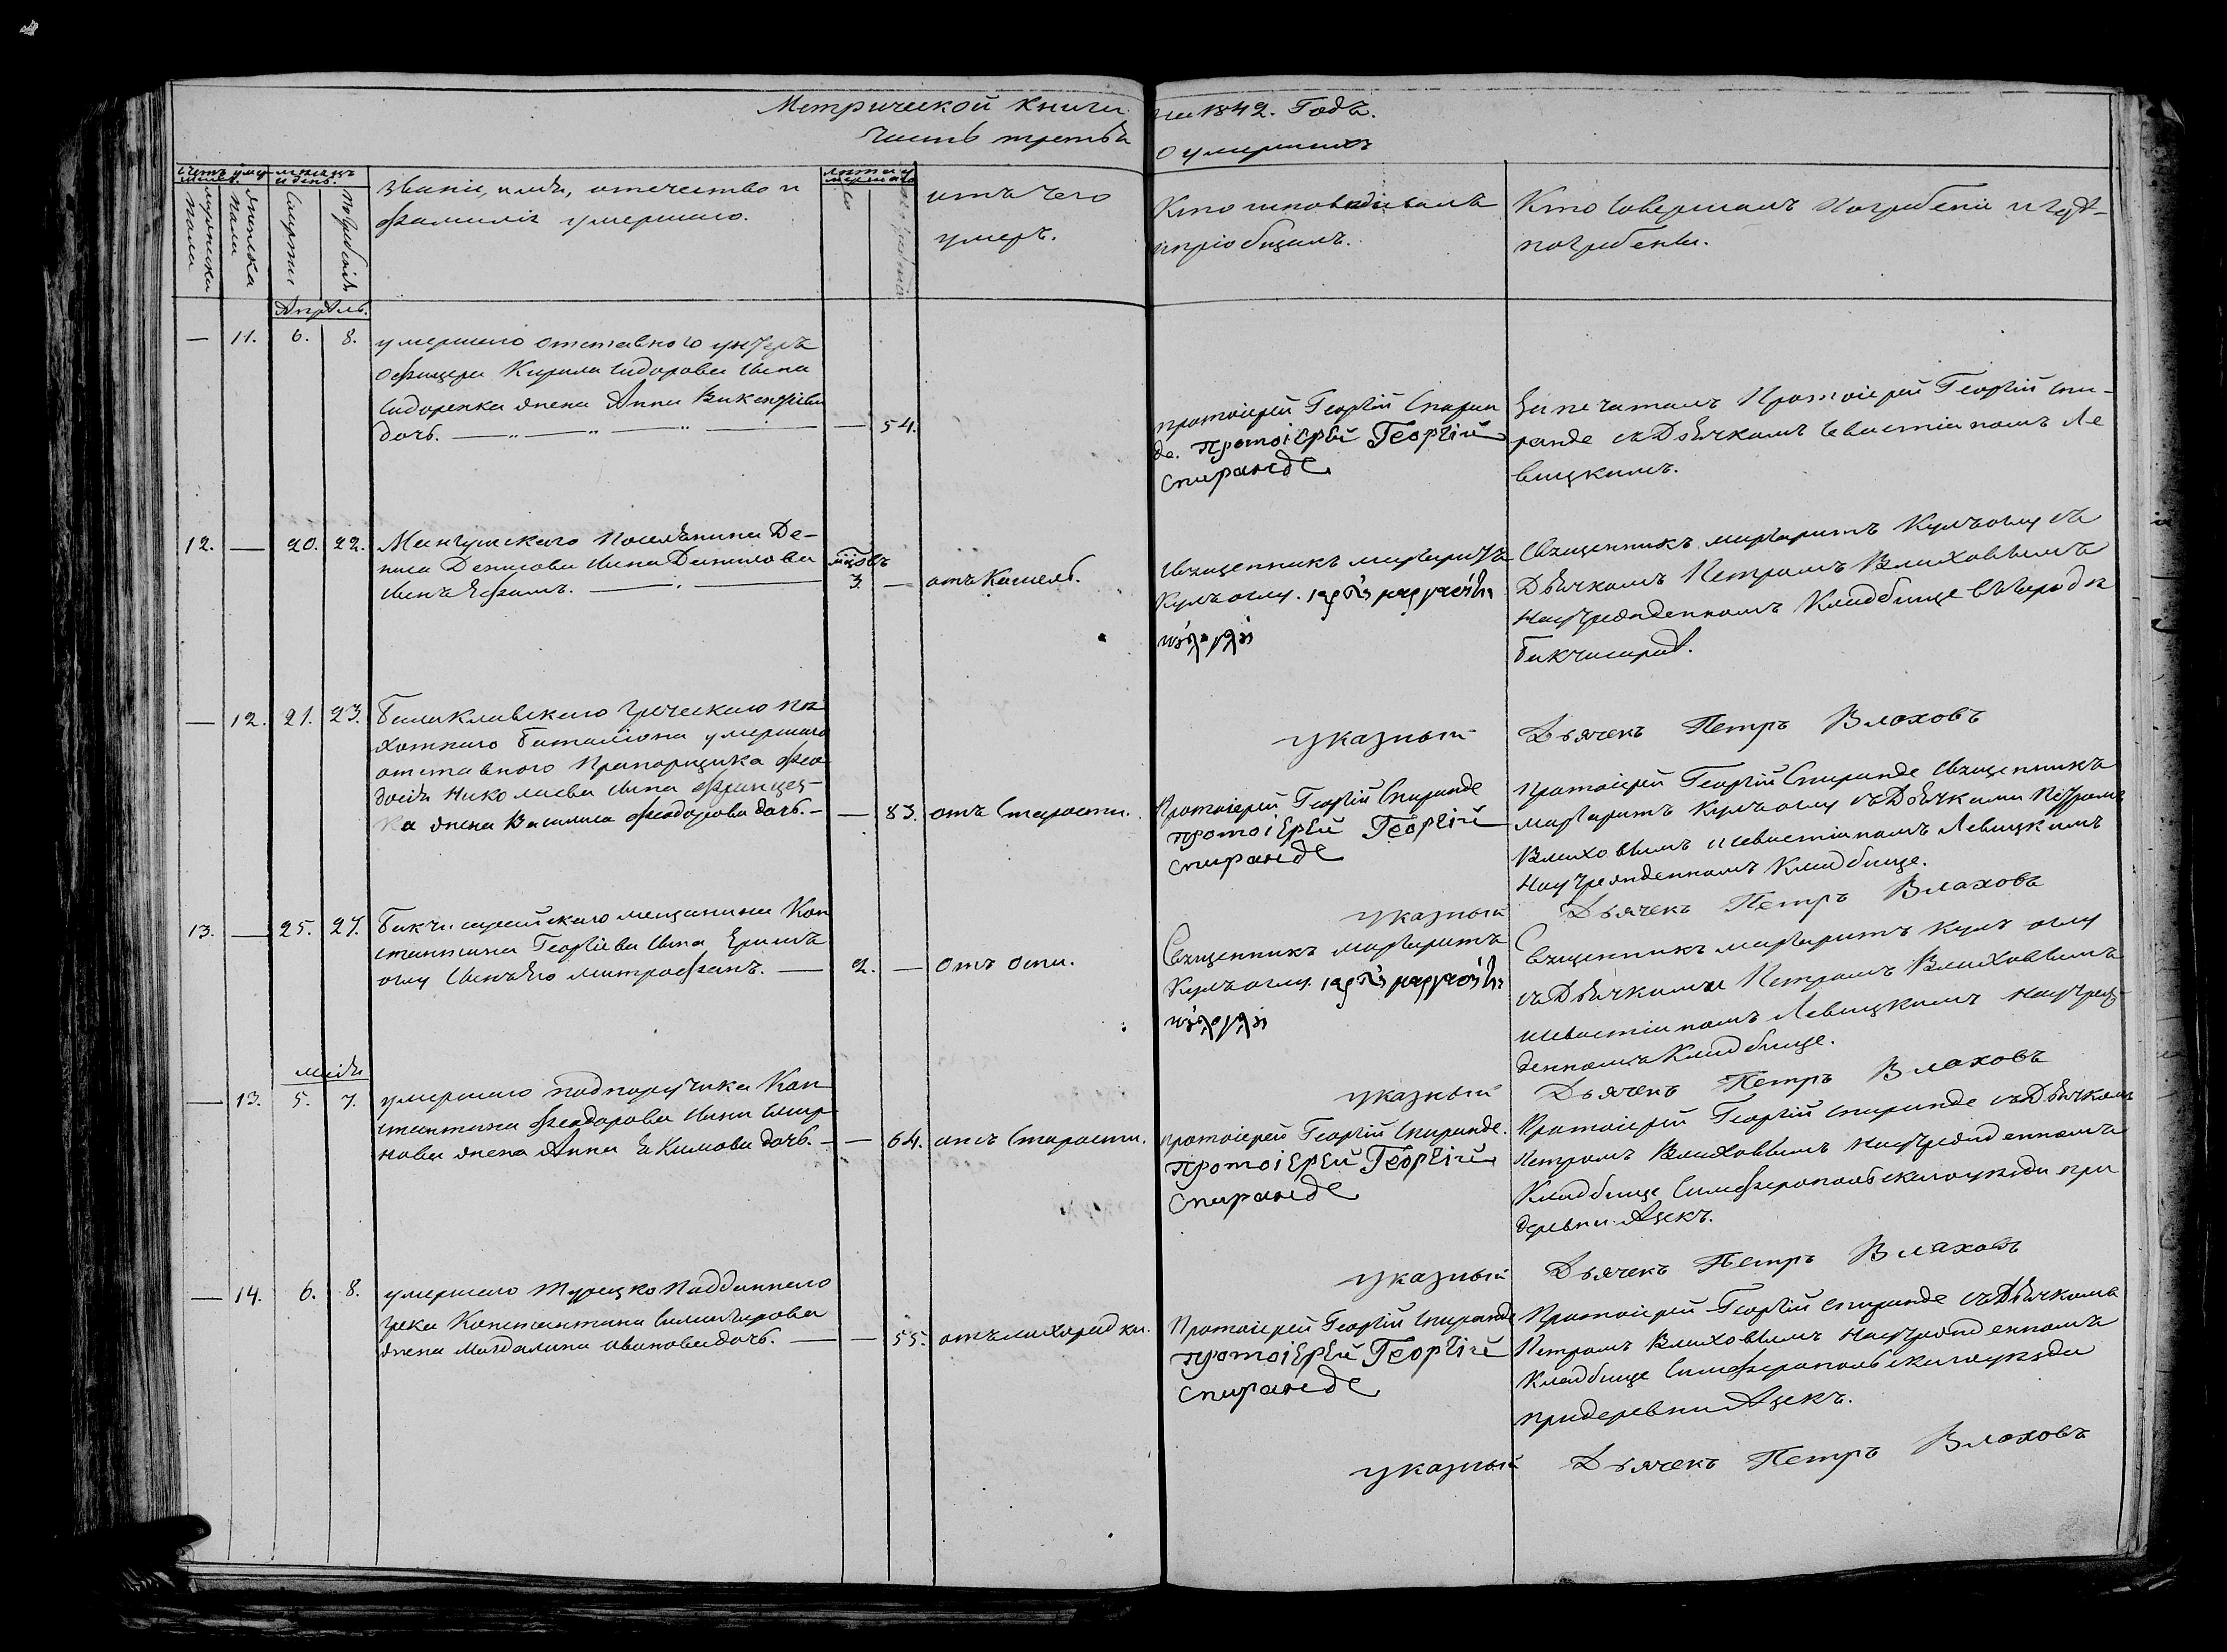 Метрической книги на 1842. Годъ.
Часть третья о умершихъ
Счетъ умершихъ.
мужеска пола
женска пола
мѣсяцъ и день.
Смерти
погребенія
Званіе, имя, отечество и
фамилія умершаго.
лѣта умершаго
мужескаго
женскаго
отъ чего
умеръ.
Кто исповѣдывалъ
и пріобщалъ.
Кто Совершалъ погребеніе и гдѣ
погребены.
Апрѣль.
— 11. 6. 8. умершаго отставного унтеръ
офицера Кирила Сидорова Сына
Сидоренка жена Анна Викентіева
дочь. — 54.
протоіерей Георгій Спиран
де. протоіерей Георгій
Спиранде
Запечаталъ Протоіерей Георгій Спи-
ранде съ Дьячкомъ Севастіаномъ Ле
вицкимъ.
12. — 20. 22. Мангушскаго поселянина Де-
ниса Денисова Сына Данилова
Сынъ Ефимъ. мѣсяцовъ 3. — отъ Кашель.
Священникъ маргаритъ
Кулъ оглу.
Священникъ маргаритъ Кулъ оглу съ
Дьячкомъ Петромъ Влаховымъ
на учрежденномъ Кладбище в городѣ
бакчисараѣ.
указный Дьячекъ Петръ Влаховъ
— 12. 21. 23. Балаклавскаго греческаго пѣ
хотнаго баталіона умершаго
отставного Прапорщика Фео
досія Николаева Сына Францес-
ка жена Василиса Феодорова дочь. — 83. отъ Старости.
Протоіерей Георгій Спиранде
протоіерей Георгій
спиранде
протоіерей Георгій Спиранде Священникъ
маргаритъ Кулъ оглу съ Дьячками Петромъ
Влаховымъ и Севастіаномъ Левицкимъ
на учрежденномъ Кладбище.
указный Дьячекъ Петръ Влаховъ
13. — 25. 27. Бакчисарайскаго мещанина Кон
стантина Георгіева Сына
оглу Сынъ Его митрофанъ. — 2. — Отъ оспы.
Священникъ маргаритъ
Кулъ оглу.
Священникъ маргаритъ Кулъ оглу
съ Дьячками Петромъ Влаховымъ
и Севастіаномъ Левицкимъ на учреж-
денномъ Кладбище.
указный Дьячекъ Петръ Влаховъ
маія
— 13. 5. 7. умершаго подпоручика Кон
стантина Феодорова Сына Смир
нова жена Анна Екимова дочь. — 64. отъ Старости.
протоіерей Георгій Спиранде.
протоіерей Георгій
спиранде
Протоіерей Георгій Спиранде съ Дьячкомъ
Петромъ Влаховымъ на учрежденномъ
Кладбище Симферопольскаго уѣзда при
деревни Ацекъ.
указный Дьячекъ Петръ Влаховъ
— 14. 6. 8. умершаго Турецко Подданнаго
грека Константина
жена Магдалина Иванова дочь. — 55. отъ лихорадки.
Протоіерей Георгій Спиранде
протоіерей Георгій
спиранде
Протоіерей Георгій Спиранде съ Дьячкомъ
Петромъ Влаховымъ на учрежденномъ
Кладбище Симферопольскаго уѣзда
при деревни Ацекъ.
указный Дьячекъ Петръ Влаховъ